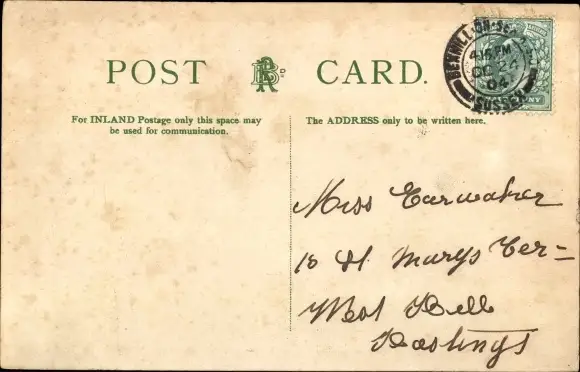 POST CARD.
For INLAND Postage only this space may
be used for communication.
The ADDRESS only to be written here.
BEXHILL-ON-SEA
4.15 PM
OC 24
04
SUSSEX
Miss Earwaker
18 St Marys Ter=
West Hill
Hastings